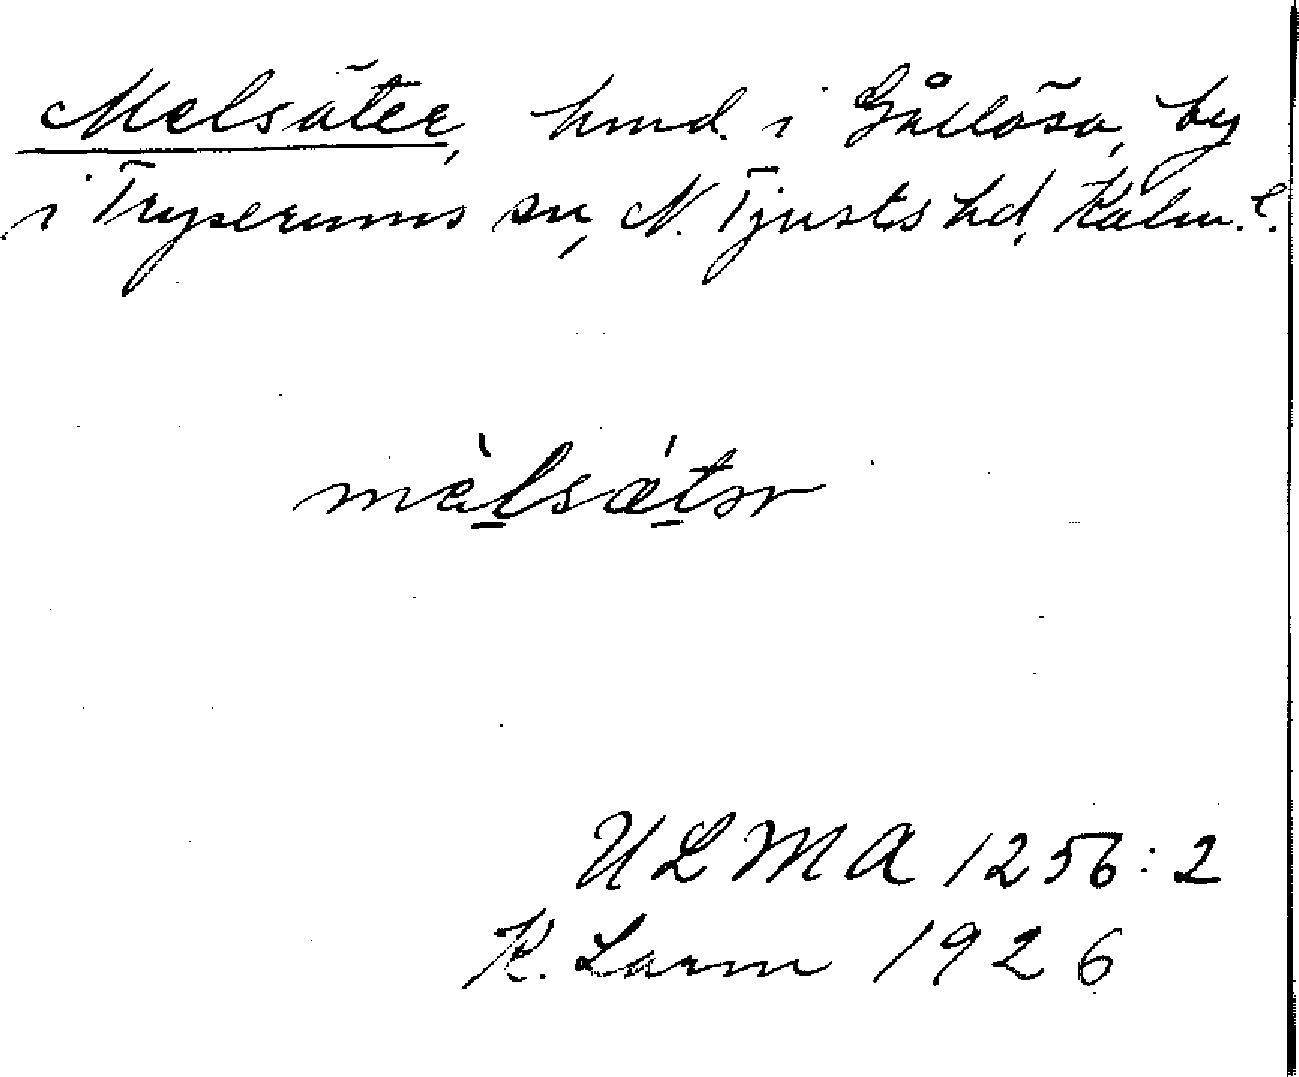 Melsäter, hmd. i Gållösa, by
i Tryserums sn, N. Tjusts hd, Kalm. l.
mèlsǽtər
ULMA 1256:2
K. Larm 1926